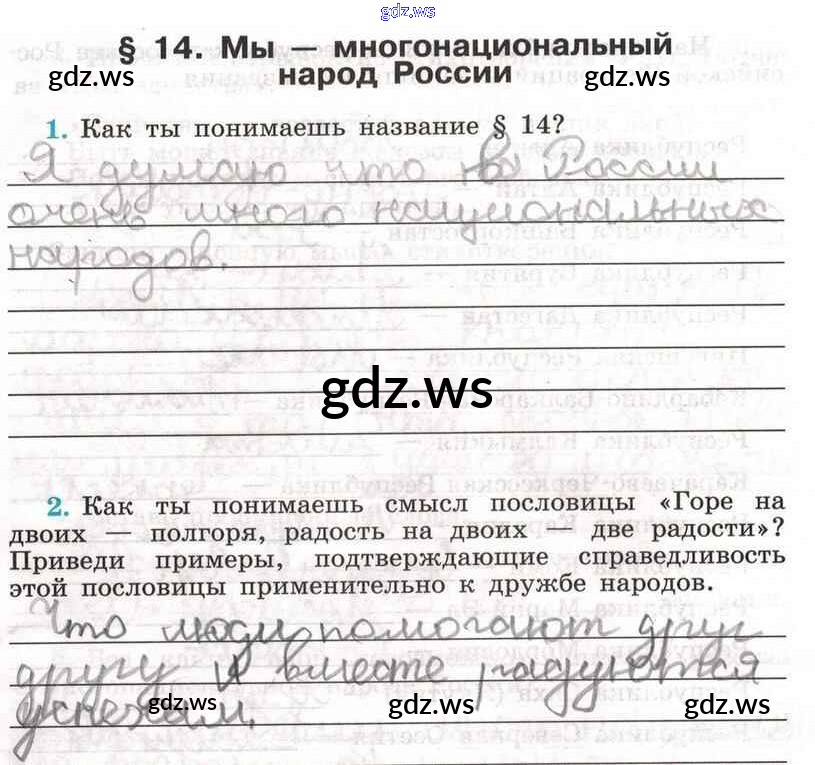 gdz.ws
§ 14. Мы — многонациональный
народ России
gdz.ws
gdz.ws
1. Как ты понимаешь название § 14?
Я думаю что в России
очень много национальных
народов.
gdz.ws
2. Как ты понимаешь смысл пословицы «Горе на
двоих — полгоря, радость на двоих — две радости»?
Приведи примеры, подтверждающие справедливость
этой пословицы применительно к дружбе народов.
Что люди помогают друг
другу и вместе радуются
успехам.
gdz.ws
gdz.ws
gdz.ws